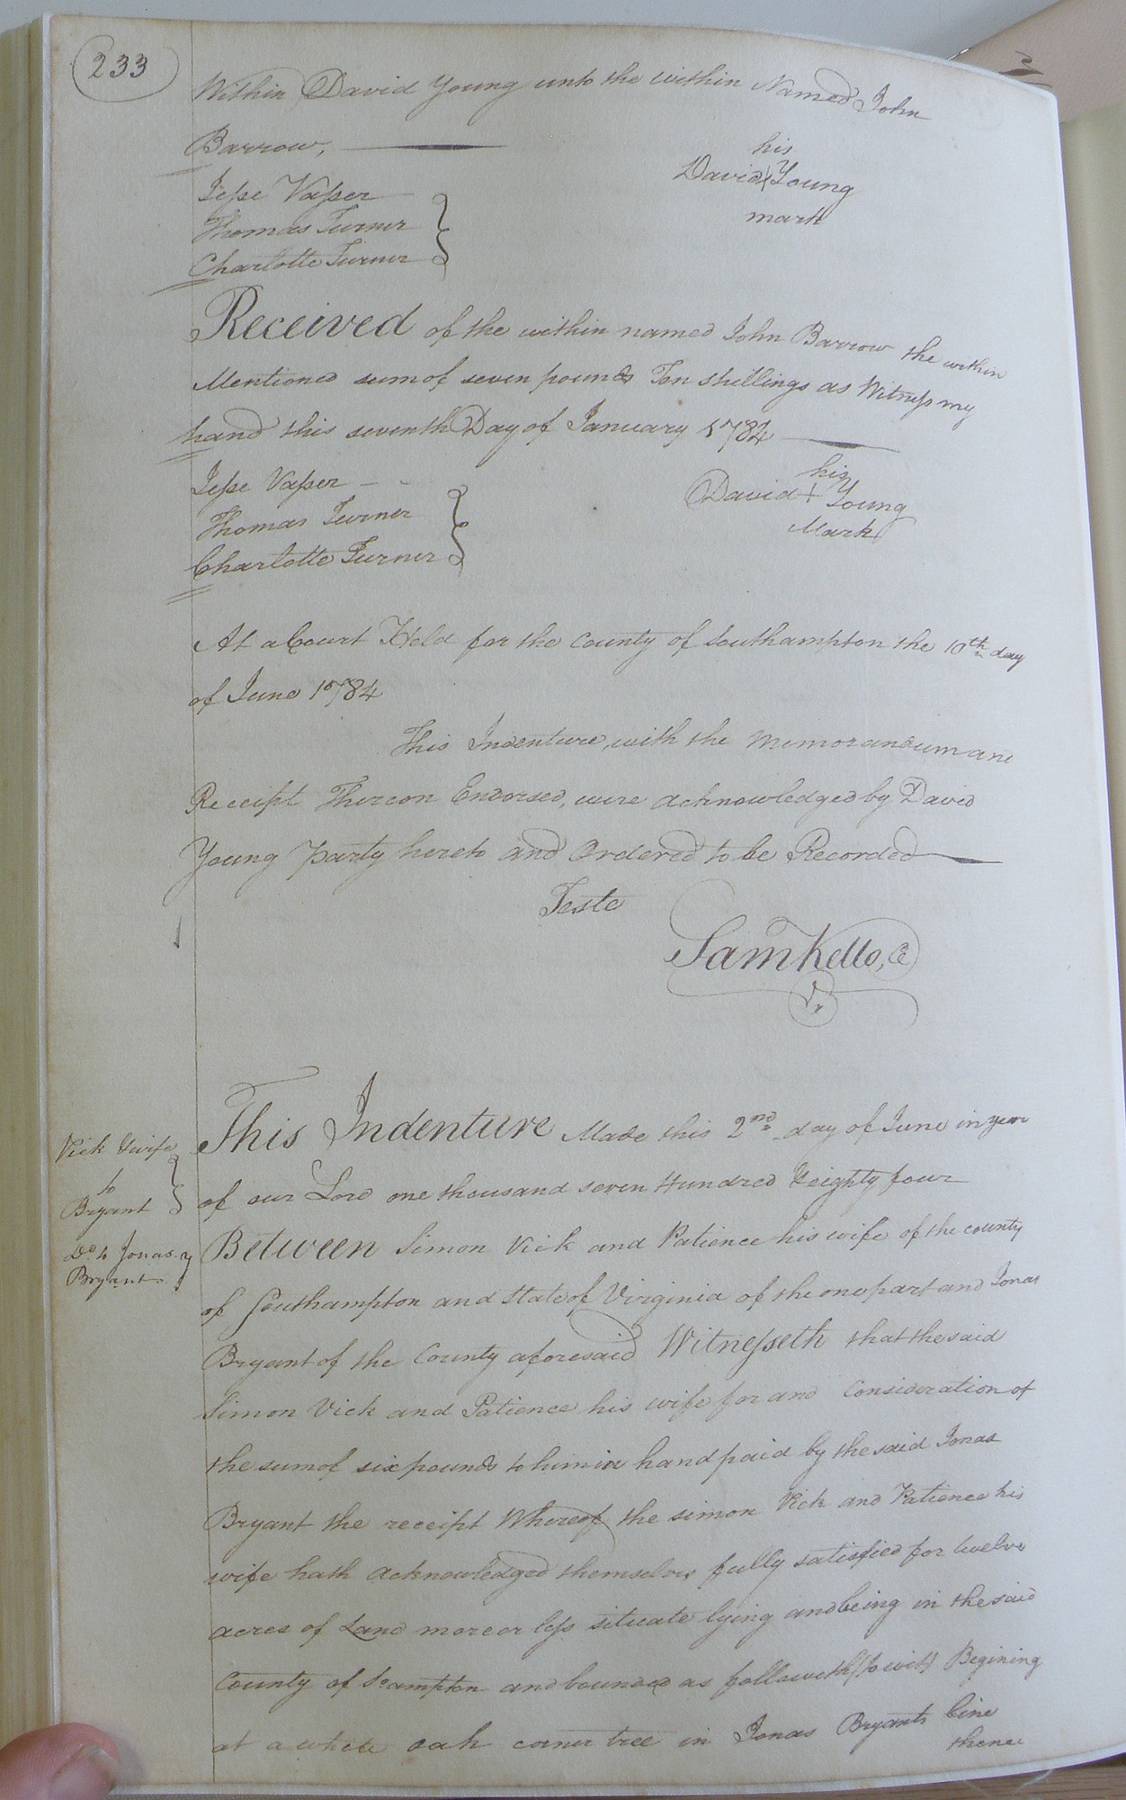 233
Within David Young unto the within Named John
Barrow,
his
David X Young
mark
Jesse Vasser
Thomas Turner
Charlotte Turner
Received of the within named John Barrow the within
Mentioned sum of seven pounds Ten shillings as Witness my
hand this seventh Day of January 1784
Jesse Vasser
Thomas Turner
Charlotte Turner
his
David + Young
Mark
At a Court Held for the County of Southampton the 10th day
of June 1784
This Indenture, with the Memorandum and
Receipt Thereon Endorsed, were acknowledged by David
Young party hereto and Ordered to be Recorded
Teste
Sam Kello, C
Vick & wife
to
Bryant
Do to Jonas
Bryant
This Indenture Made this 2nd day of June in year
of our Lord one thousand seven Hundred & eighty four
Between Simon Vick and Patience his wife of the county
of Southampton and State of Virginia of the one part and Jonas
Bryant of the County aforesaid Witnesseth that the said
Simon Vick and Patience his wife for and Consideration of
the sum of six pounds to him in hand paid by the said Jonas
Bryant the receipt Whereof the simon Vick and Patience his
wife hath acknowledged themselves fully satisfied for twelve
acres of Land more or less situate lying and being in the said
County of So ampton and bounded as followeth (to wit) Begining
at a white oak corner tree in Jonas Bryants line
thence